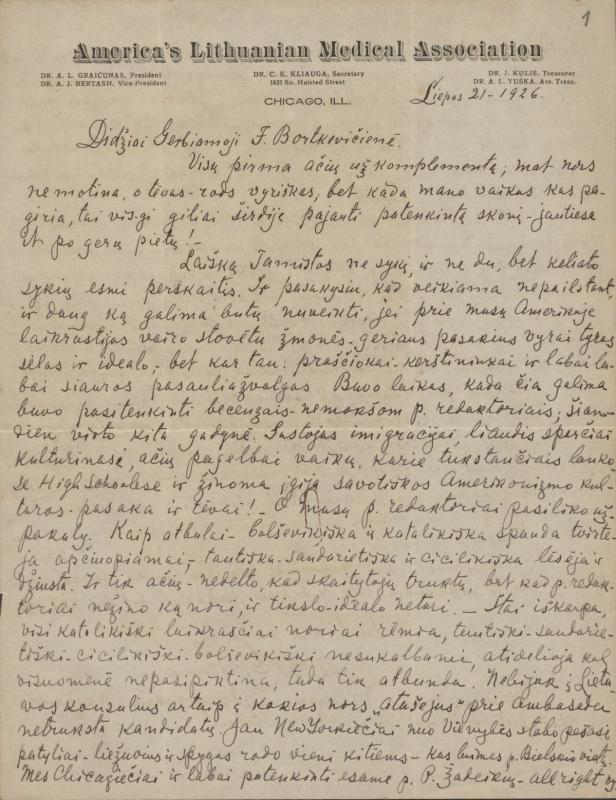 1
America's Lithuanian Medical Association
DR. A. L. GRAIČUNAS, President
DR. A. J. BERTASH, Vice-President
DR. C. K. KLIAUGA, Secretary
1821 So. Halsted Street
DR. J. KULIS, Treasurer
DR. A. L. YUŠKA, Ass. Treas.
CHICAGO, ILL.
Liepos 21-1926.
Didžiai Gerbiamoji F. Bortkevičienė.
Visų pirma ačių už komplementą; mat nors
ne motina, o tėvas-rods vyriškas, bet kada mano vaikas kas pa-
giria, tai vis-gi giliai širdije pajauti patenkintą skonį-jautiese
it po gerų pietų!-
Laišką Tamistos ne sykį, ir ne du, bet keliato
sykių esmi perskaitis. Ir pasakysiu, kad veikiama nepailstant
ir daug ką galima butų nuveikti, jei prie musų Amerikoje
laikrastijos vairo stovėtų žmonės-geriaus pasakius vyrai tyros
sėlas ir idealo,- bet kur tau: prasčiokai-kerštininkai ir labai la-
bai siauros pasauliažvalgas. Buvo laikas, kada čia galima
buvo pasitenkinti becenzais-nemokšom p. redaktoriais; šian-
dien virto kita gadynė. Sustojas imigracijai, liaudis sparčiai
kulturinase, ačių pagelbai vaikų, kurie tukstančiais lanko-
se High Schoolese ir žinoma įgija savotiškos Amerikonizmo kul-
turos-pasaka ir tėvai!- O musų p. redaktoriai pasiliko už-
pakaly. Kaip atbulai- bolševikiška ir katalikiška spauda tvirtė-
ja apčiuopiamai,- tautiška-sandarietiška ir cicilikiška lėsėja ir
džiusta. Ir tik ačių- nedelto, kad skaitytojų truktų, bet kad p. redak-
toriai nežino ką nori, ir tikslo-idealo neturi. - Štai iškarpa,
visi katalikiški laikrasčiai noriai rėmia, tautiški-sandarie-
tiški-cicilikiški-bolševikiški nesukalbami, atidėlioja kol
visuomenė nepasipiktina, tada tik atbunda. Nebijok į Lietu
vos konsulius ar taip į kokios nors „atašejus" prie Ambasados
netruksta kandidatų. Jau New Yorkiečiai nuo Vienybės stabo pešasi
patyliai-liežuvius ir spygas rodo vieni kitiems- kas luimes p. Bielskio vietą.
Mes Chicagiečiai ir labai patenkinti esame p. P. Žadeikių- all right